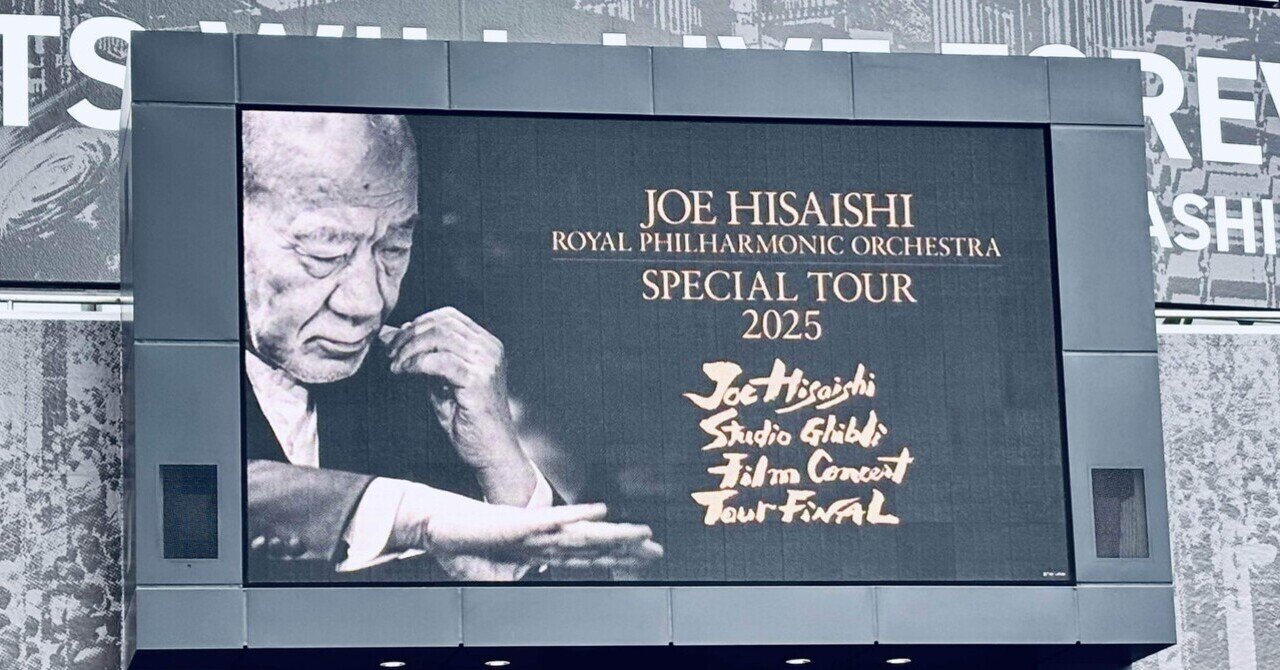 TS WILL LIVE FOREV
ASHI
JOE HISAISHI
ROYAL PHILHARMONIC ORCHESTRA
SPECIAL TOUR
2025
Joe Hisaishi
Studio Ghibli
Film Concert
Tour FINAL